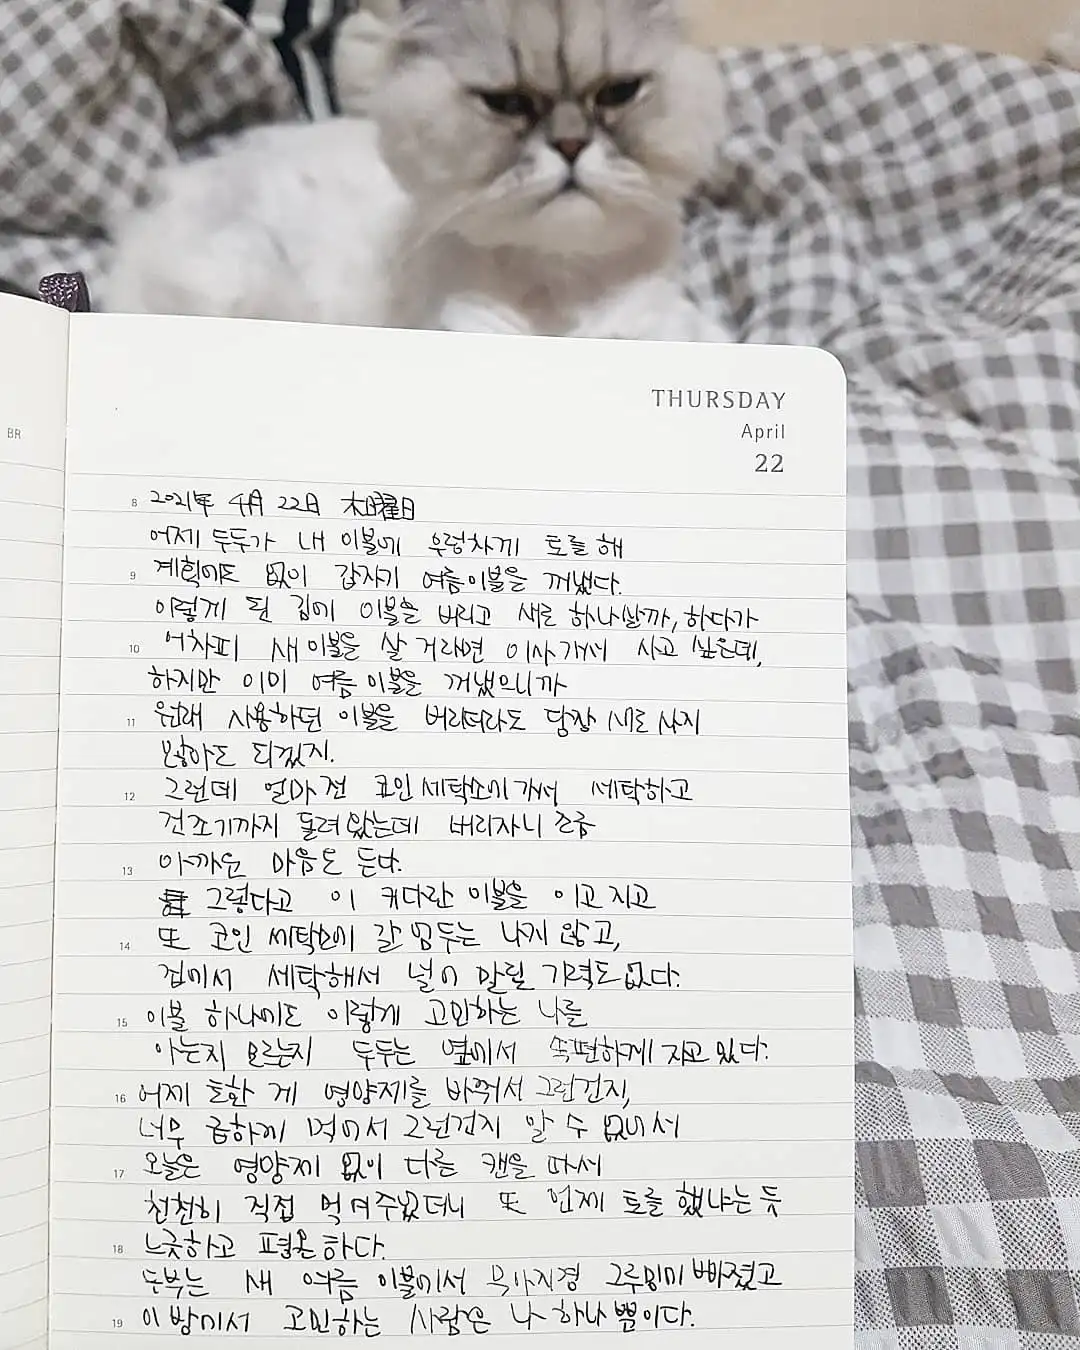 BR
THURSDAY
April
22
8 2021年 4月 22日 木曜日
어제 두두가 내 이불에 우렁차게 토를 해
9 계획에도 없이 갑자기 여름이불을 꺼냈다.
이렇게 된 김에 이불을 버리고 새로 하나 살까, 하다가
10 어차피 새 이불을 살 거라면 이사가서 사고 싶은데,
하지만 이미 여름 이불을 꺼냈으니까
11 원래 사용하던 이불을 버리더라도 당장 새로 사지
않아도 되겠지.
12 그런데 얼마 전 코인 세탁소에 가서 세탁하고
건조기까지 돌려 왔는데 버리자니 조금
13 아까운 마음도 든다.
그렇다고 이 커다란 이불을 이고 지고
14 또 코인 세탁소에 갈 엄두는 나지 않고,
집에서 세탁해서 널어 말릴 기력도 없다.
15 이불 하나에도 이렇게 고민하는 나를
아는지 모르는지 두두는 옆에서 속편하게 자고 있다.
16 어제 토한 게 영양제를 바꿔서 그런건지,
너무 급하게 먹어서 그런건지 알 수 없어서
17 오늘은 영양제 없이 다른 캔을 따서
천천히 직접 먹여주었더니 또 언제 토를 했냐는 듯
18 느긋하고 평온하다.
두부는 새 여름 이불에서 무아지경 그루밍에 빠졌고
19 이 방에서 고민하는 사람은 나 하나 뿐이다.